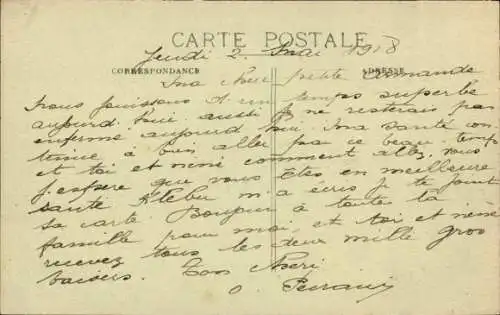 CARTE POSTALE
Jeudi 2 Mai 1918
CORRESPONDANCE ADRESSE
Ma chère petite Armande
nous jouissons d'un temps superbe
aujourd'hui aussi je ne resterais pas
enfermé aujourd'hui. Ma santé con
tinue à bien aller par ce beau temps
et toi et néné comment allez vous
j'espère que vous êtes en meilleure
santé Kleber m'a écris je te joint
sa carte. Bonjour à toutes la
famille pour moi, et toi et néné
recevez tous les deux mille gros
baisers. Ton Cheri